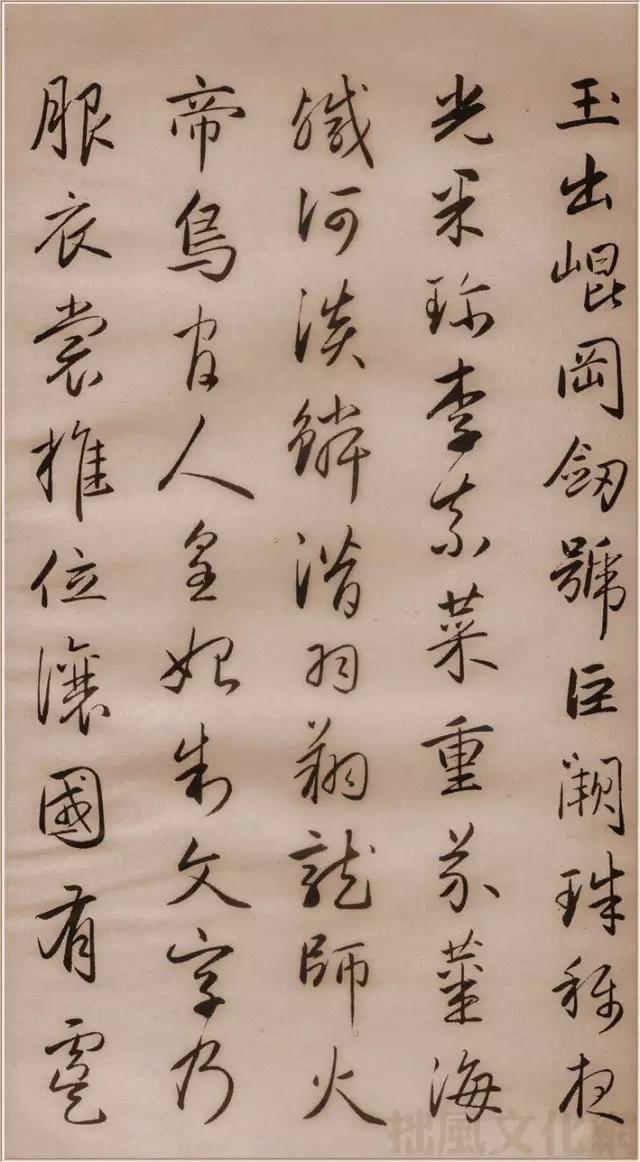 玉出崐岡劔號巨闕珠稱夜
光果珍李柰菜重芥薑海
鹹河淡鱗潛羽翔龍師火
帝鳥官人皇始制文字乃
服衣裳推位讓國有虞
拙風文化網